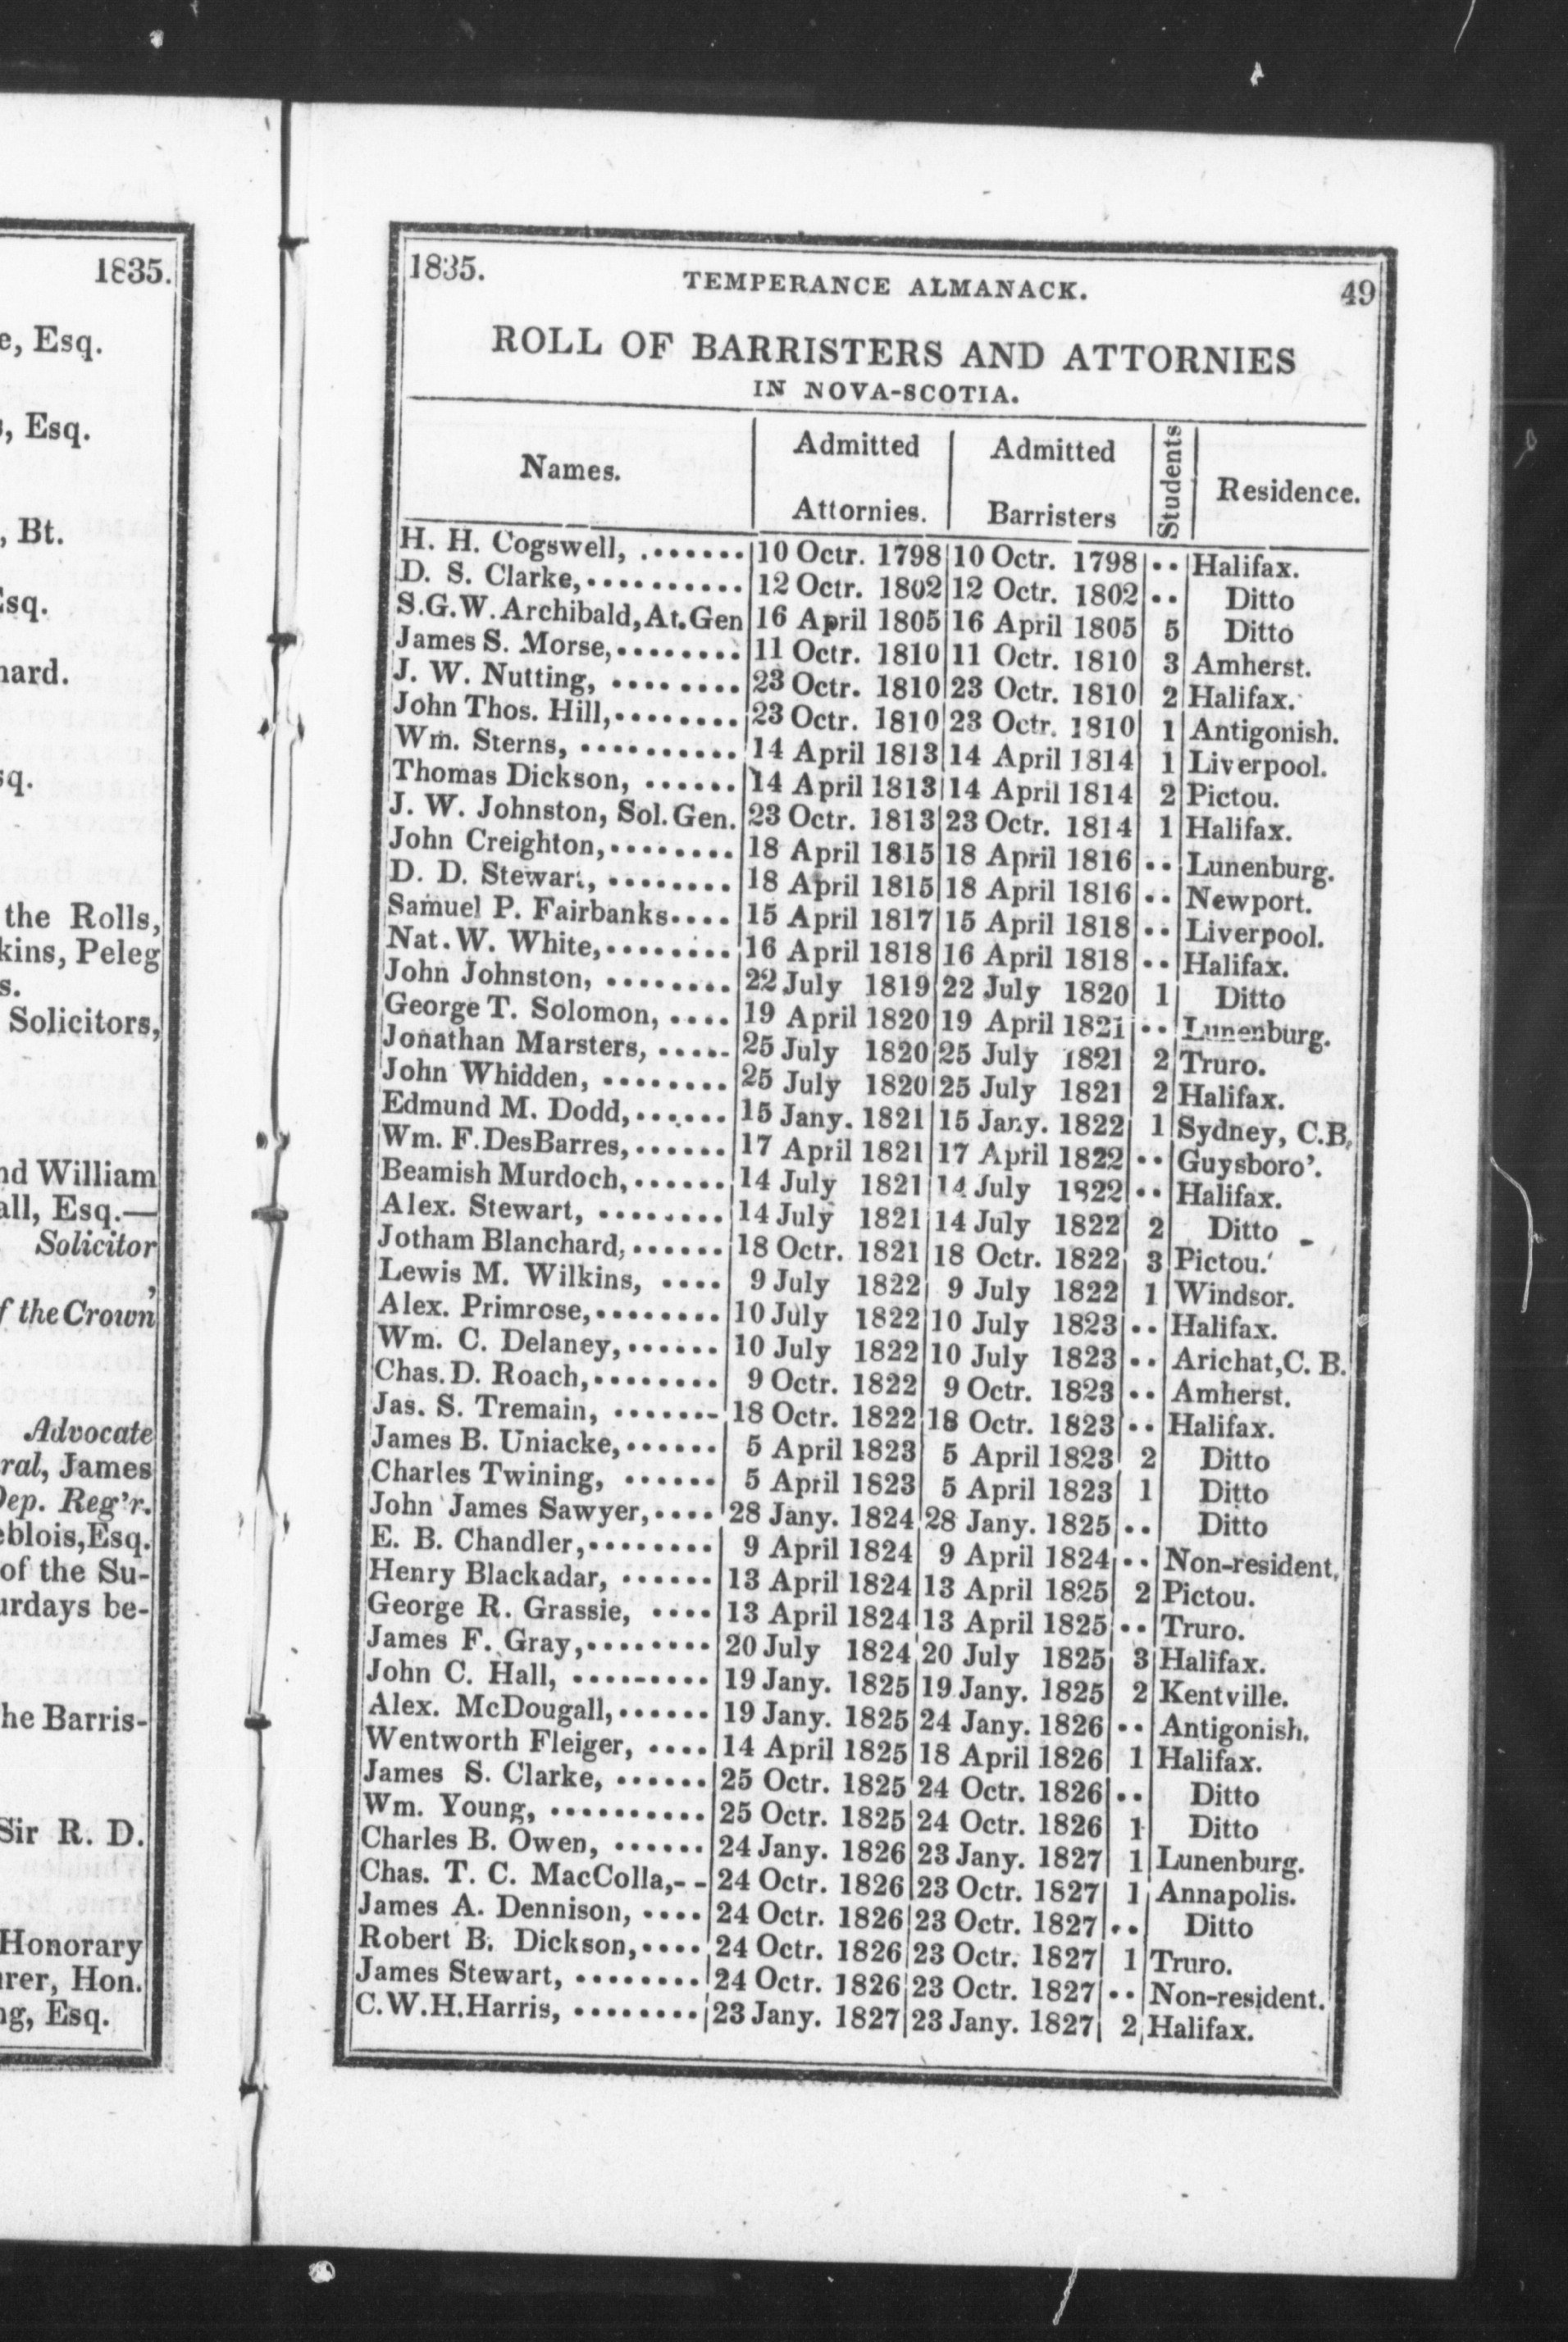 1835.
e, Esq.
, Esq.
, Bt.
Esq.
hard.
sq.
the Rolls,
kins, Peleg
s.
Solicitors,
nd William
all, Esq.—
Solicitor
,
f the Crown
Advocate
ral, James
Dep. Reg'r.
eblois,Esq.
of the Su-
urdays be-
he Barris-
Sir R. D.
Honorary
urer, Hon.
ng, Esq.
1835. TEMPERANCE ALMANACK. 49
ROLL OF BARRISTERS AND ATTORNIES
IN NOVA-SCOTIA.
Names. Admitted Attornies. Admitted Barristers Students Residence.
H. H. Cogswell, ....... 10 Octr. 1798 10 Octr. 1798 .. Halifax.
D. S. Clarke,.......... 12 Octr. 1802 12 Octr. 1802 .. Ditto
S.G.W. Archibald, At.Gen 16 April 1805 16 April 1805 5 Ditto
James S. Morse,........ 11 Octr. 1810 11 Octr. 1810 3 Amherst.
J. W. Nutting, ........ 23 Octr. 1810 23 Octr. 1810 2 Halifax.
John Thos. Hill,........ 23 Octr. 1810 23 Octr. 1810 1 Antigonish.
Wm. Sterns, .......... 14 April 1813 14 April 1814 1 Liverpool.
Thomas Dickson, ...... 14 April 1813 14 April 1814 2 Pictou.
J. W. Johnston, Sol. Gen. 23 Octr. 1813 23 Octr. 1814 1 Halifax.
John Creighton,........ 18 April 1815 18 April 1816 .. Lunenburg.
D. D. Stewart, ........ 18 April 1815 18 April 1816 .. Newport.
Samuel P. Fairbanks.... 15 April 1817 15 April 1818 .. Liverpool.
Nat. W. White,......... 16 April 1818 16 April 1818 .. Halifax.
John Johnston, ........ 22 July 1819 22 July 1820 1 Ditto
George T. Solomon, .... 19 April 1820 19 April 1821 .. Lunenburg.
Jonathan Marsters, ..... 25 July 1820 25 July 1821 2 Truro.
John Whidden, ........ 25 July 1820 25 July 1821 2 Halifax.
Edmund M. Dodd,...... 15 Jany. 1821 15 Jany. 1822 1 Sydney, C.B.
Wm. F. DesBarres, ...... 17 April 1821 17 April 1822 .. Guysboro'.
Beamish Murdoch,...... 14 July 1821 14 July 1822 .. Halifax.
Alex. Stewart, ........ 14 July 1821 14 July 1822 2 Ditto
Jotham Blanchard,...... 18 Octr. 1821 18 Octr. 1822 3 Pictou.
Lewis M. Wilkins, .... 9 July 1822 9 July 1822 1 Windsor.
Alex. Primrose,........ 10 July 1822 10 July 1823 .. Halifax.
Wm. C. Delaney,...... 10 July 1822 10 July 1823 .. Arichat, C. B.
Chas. D. Roach,........ 9 Octr. 1822 9 Octr. 1823 .. Amherst.
Jas. S. Tremain, ....... 18 Octr. 1822 18 Octr. 1823 .. Halifax.
James B. Uniacke,...... 5 April 1823 5 April 1823 2 Ditto
Charles Twining, ...... 5 April 1823 5 April 1823 1 Ditto
John James Sawyer,.... 28 Jany. 1824 28 Jany. 1825 .. Ditto
E. B. Chandler,........ 9 April 1824 9 April 1824 .. Non-resident.
Henry Blackadar, ...... 13 April 1824 13 April 1825 2 Pictou.
George R. Grassie, .... 13 April 1824 13 April 1825 .. Truro.
James F. Gray,........ 20 July 1824 20 July 1825 3 Halifax.
John C. Hall, ......... 19 Jany. 1825 19 Jany. 1825 2 Kentville.
Alex. McDougall,...... 19 Jany. 1825 24 Jany. 1826 .. Antigonish.
Wentworth Fleiger, .... 14 April 1825 18 April 1826 1 Halifax.
James S. Clarke, ...... 25 Octr. 1825 24 Octr. 1826 .. Ditto
Wm. Young, .......... 25 Octr. 1825 24 Octr. 1826 1 Ditto
Charles B. Owen, ...... 24 Jany. 1826 23 Jany. 1827 1 Lunenburg.
Chas. T. C. MacColla,-- 24 Octr. 1826 23 Octr. 1827 1 Annapolis.
James A. Dennison, .... 24 Octr. 1826 23 Octr. 1827 .. Ditto
Robert B. Dickson,.... 24 Octr. 1826 23 Octr. 1827 1 Truro.
James Stewart, ........ 24 Octr. 1826 23 Octr. 1827 .. Non-resident.
C.W.H.Harris, ........ 23 Jany. 1827 23 Jany. 1827 2 Halifax.